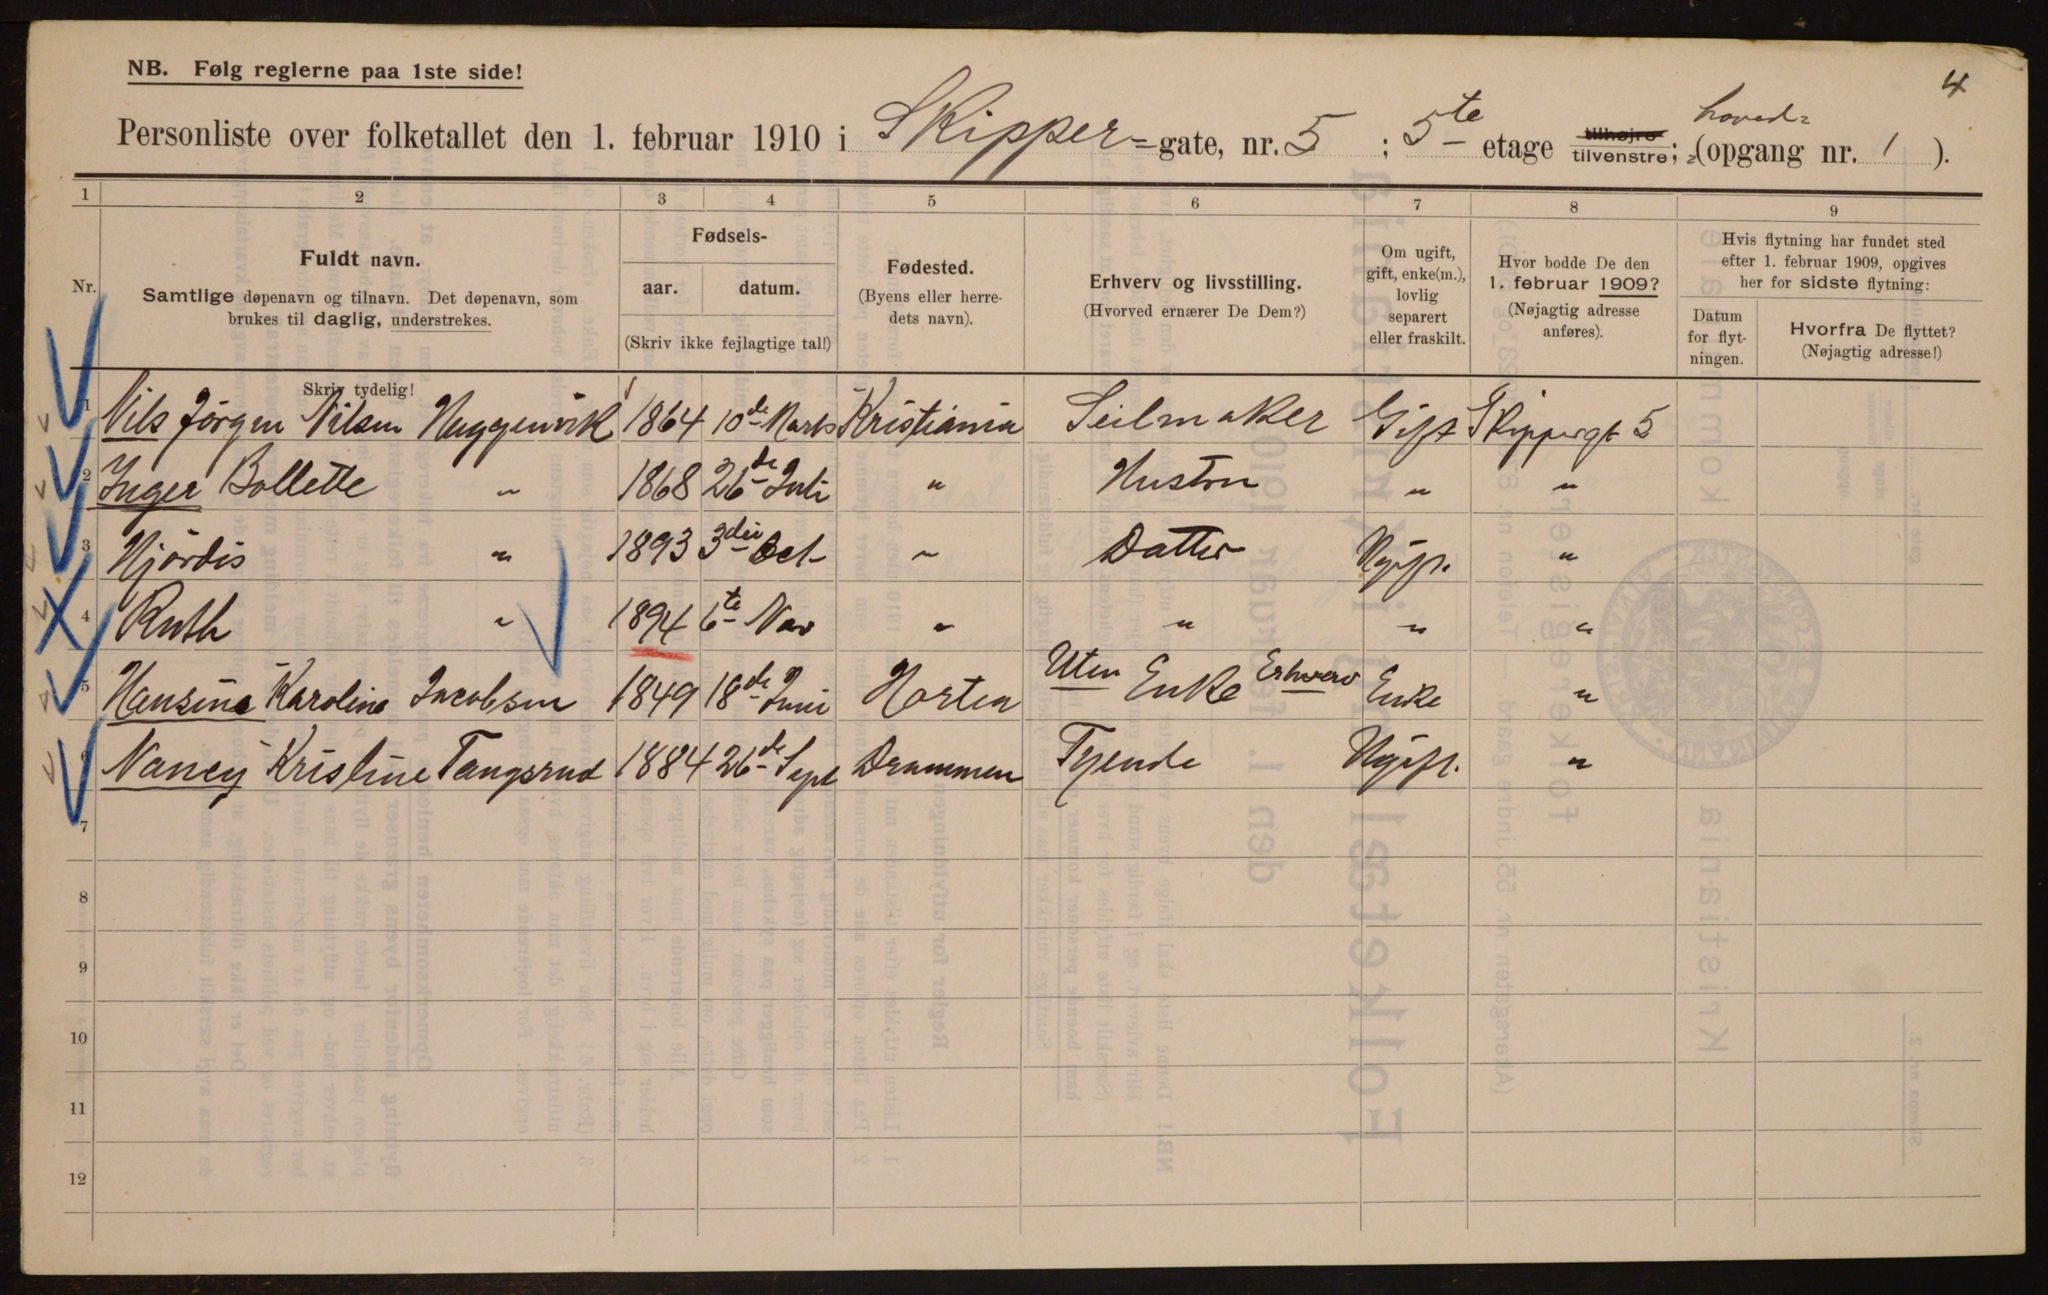 4
NB. Følg reglerne paa 1ste side!
Personliste over folketallet den 1. februar 1910 i Skipper-gate, nr. 5 ; 5te etage tilhøjre tilvenstre; hoved= (opgang nr. 1 ).
1 2 3 4 5 6 7 8 9
Nr.
Fuldt navn.
Samtlige døpenavn og tilnavn. Det døpenavn, som
brukes til daglig, understrekes.
Skriv tydelig!
Fødsels-
aar. datum.
(Skriv ikke fejlagtige tal!)
Fødested.
(Byens eller herre-
dets navn).
Erhverv og livsstilling.
(Hvorved ernærer De Dem?)
Om ugift,
gift, enke(m.),
lovlig
separert
eller fraskilt.
Hvor bodde De den
1. februar 1909?
(Nøjagtig adresse
anføres).
Hvis flytning har fundet sted
efter 1. februar 1909, opgives
her for sidste flytning:
Datum
for flyt-
ningen.
Hvorfra De flyttet?
(Nøjagtig adresse!)
1 Nils Jörgen Nilsen Haggenvik 1864 10de Marts Kristiania Seilmaker Gift Skippergt 5
2 Inger Bollette " 1868 26de Juli " Hustru " "
3 Hjördis " 1893 3die Oct " Datter Ugift. "
4 Ruth " 1894 6te Nov " " " "
5 Hansine Karoline Jacobsen 1849 18de Juni Horten Uten Enke Erhverv Enke "
6 Nancy Kristine Tangsrud 1884 26de Sept Drammen Tyende Ugift. "
7
8
9
10
11
12